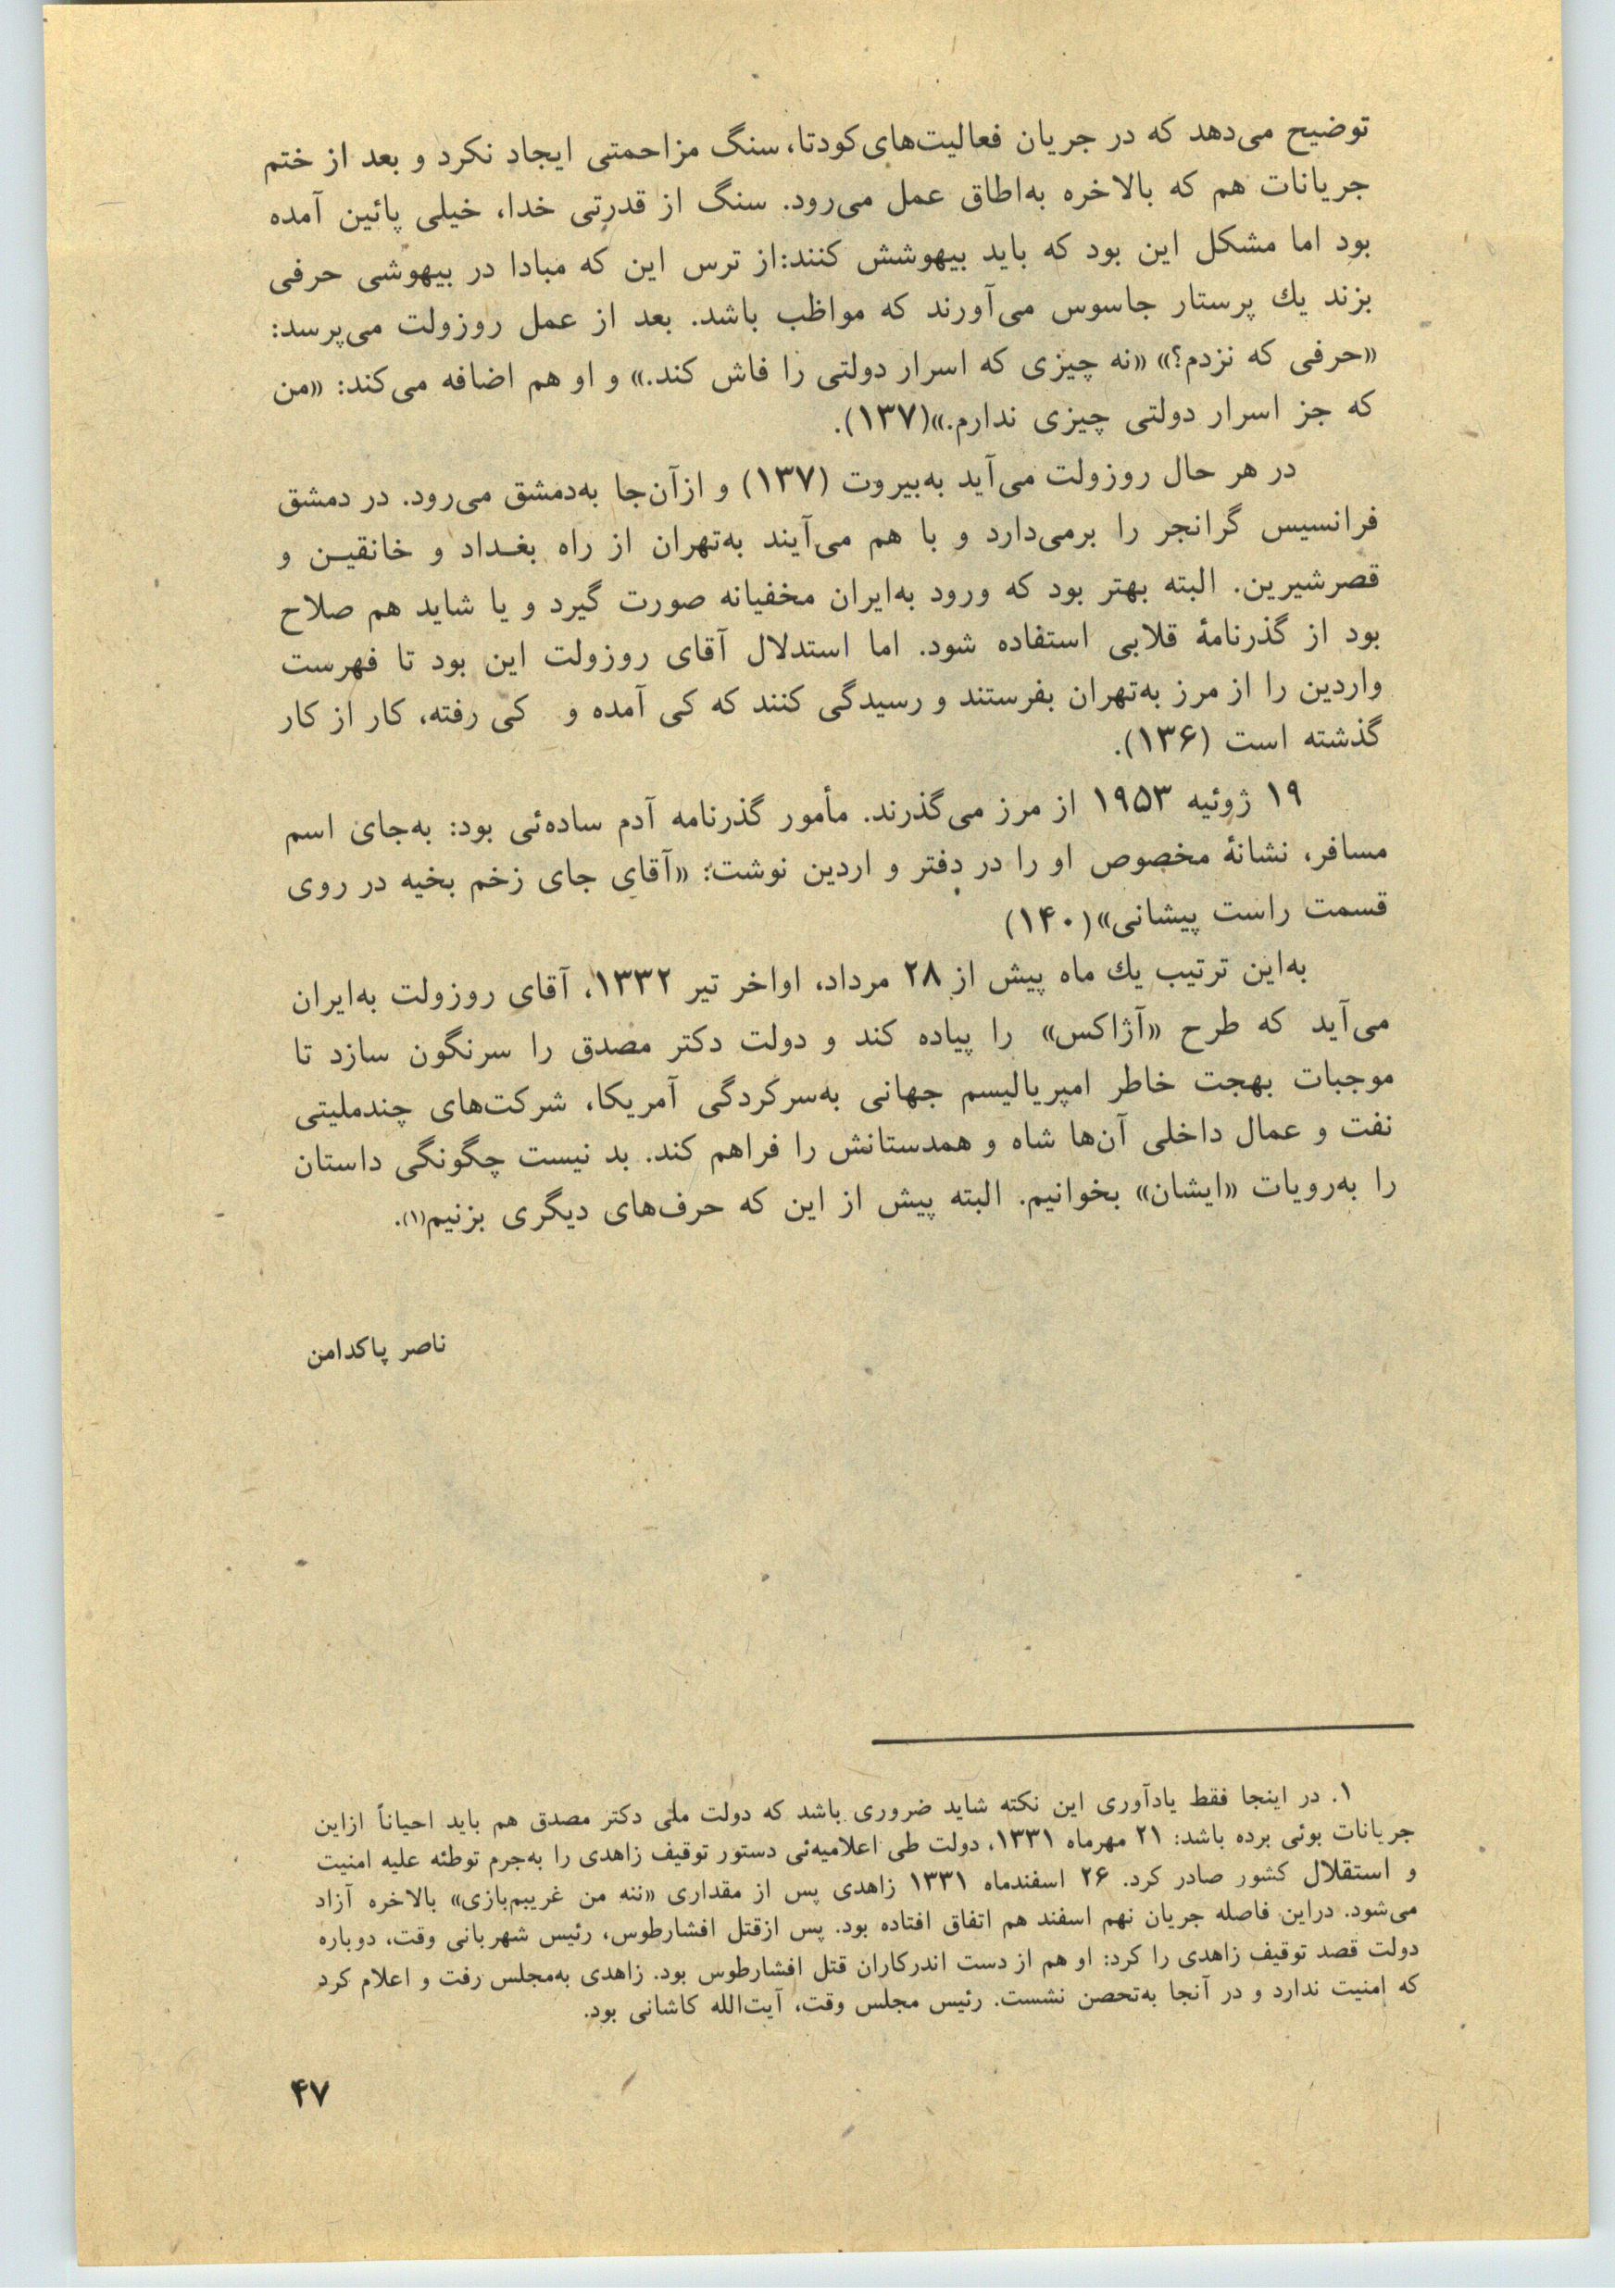 توضیح می‌دهد که در جریان فعالیت‌های کودتا، سنگ مزاحمتی ایجاد نکرد و بعد از ختم
جریانات هم که بالاخره به‌اطاق عمل می‌رود. سنگ از قدرتی خدا، خیلی پائین آمده
بود اما مشکل این بود که باید بیهوشش کنند:از ترس این که مبادا در بیهوشی حرفی
بزند یك پرستار جاسوس می‌آورند که مواظب باشد. بعد از عمل روزولت می‌پرسد:
«حرفی که نزدم؟» «نه چیزی که اسرار دولتی را فاش کند.» و او هم اضافه می‌کند: «من
که جز اسرار دولتی چیزی ندارم.»(۱۳۷).
در هر حال روزولت می‌آید به‌بیروت (۱۳۷) و ازآن‌جا به‌دمشق می‌رود. در دمشق
فرانسیس گرانجر را برمی‌دارد و با هم می‌آیند به‌تهران از راه بغـداد و خانقیـن و
قصرشیرین. البته بهتر بود که ورود به‌ایران مخفیانه صورت گیرد و یا شاید هم صلاح
بود از گذرنامهٔ قلابی استفاده شود. اما استدلال آقای روزولت این بود تا فهرست
واردین را از مرز به‌تهران بفرستند و رسیدگی کنند که کی آمده و کی رفته، کار از کار
گذشته است (۱۳۶).
۱۹ ژوئیه ۱۹۵۳ از مرز می‌گذرند. مأمور گذرنامه آدم ساده‌ئی بود: به‌جای اسم
مسافر، نشانهٔ مخصوص او را در دفتر و اردین نوشت: «آقای جای زخم بخیه در روی
قسمت راست پیشانی»(۱۴۰)
به‌این ترتیب یك ماه پیش از ۲۸ مرداد، اواخر تیر ۱۳۳۲، آقای روزولت به‌ایران
می‌آید که طرح «آژاکس» را پیاده کند و دولت دکتر مصدق را سرنگون سازد تا
موجبات بهجت خاطر امپریالیسم جهانی به‌سرکردگی آمریکا، شرکت‌های چندملیتی
نفت و عمال داخلی آن‌ها شاه و همدستانش را فراهم کند. بد نیست چگونگی داستان
را به‌رویات «ایشان» بخوانیم. البته پیش از این که حرف‌های دیگری بزنیم(۱).
ناصر پاکدامن
۱. در اینجا فقط یادآوری این نکته شاید ضروری باشد که دولت ملی دکتر مصدق هم باید احیاناً ازاین
جریانات بوئی برده باشد: ۲۱ مهرماه ۱۳۳۱، دولت طی اعلامیه‌ئی دستور توقیف زاهدی را به‌جرم توطئه علیه امنیت
و استقلال کشور صادر کرد. ۲۶ اسفندماه ۱۳۳۱ زاهدی پس از مقداری «ننه من غریبم‌بازی» بالاخره آزاد
می‌شود. دراین فاصله جریان نهم اسفند هم اتفاق افتاده بود. پس ازقتل افشارطوس، رئیس شهربانی وقت، دوباره
دولت قصد توقیف زاهدی را کرد: او هم از دست اندرکاران قتل افشارطوس بود. زاهدی به‌مجلس رفت و اعلام کرد
که امنیت ندارد و در آنجا به‌تحصن نشست. رئیس مجلس وقت، آیت‌الله کاشانی بود.
۴۷